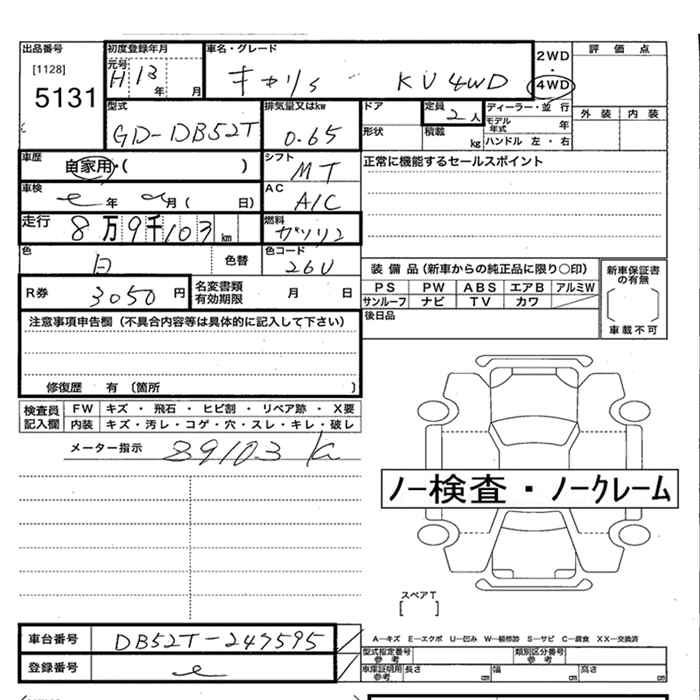 出品番号
[1128]
5131
初度登録年月
元号
H 13 年 月
車名・グレード
キャリィ KU 4WD
2WD
・
4WD
評価点
外装 内装
型式
GD-DB52T
排気量又はkw
0.65
ドア
形状
定員
2人
積載
kg
ディーラー・並行
モデル年式 年
ハンドル 左・右
車歴
自家用・( )
シフト
MT
正常に機能するセールスポイント
車検
年 月( 日)
AC
A/C
走行
8万9千103 km
燃料
ガソリン
色
白
色替
色コード
26U
装備品(新車からの純正品に限り○印)
PS PW ABS エアB アルミW
サンルーフ ナビ TV カワ
新車保証書の有無
車載不可
R券
3050円
名変書類有効期限
月 日
後日品
注意事項申告欄(不具合内容等は具体的に記入して下さい)
修復歴 有 〔箇所 〕
検査員記入欄
FW キズ・飛石・ヒビ割・リペア跡・X要
内装 キズ・汚レ・コゲ・穴・スレ・キレ・破レ
メーター指示 89103 K
ノー検査・ノークレーム
スペアT
[ ]
車台番号
DB52T-247595
登録番号
A―キズ E―エクボ U―凹み W―補修跡 S―サビ C―腐食 XX―交換済
型式指定番号 参考
類別区分番号 参考
車庫証明用 参考
長さ cm 幅 cm 高さ cm